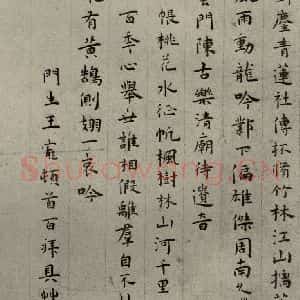 慶青蓮社傳杯脩竹林江山摛
風雨動龍吟鄴下偏雄傑周南久
門陳古樂清廟待遺音
帳桃花水征帆楓樹林山河千里
百季心舉世誰相假離羣自不
有黃鵠側翅一哀吟
門生王寵頓首百拜具艸